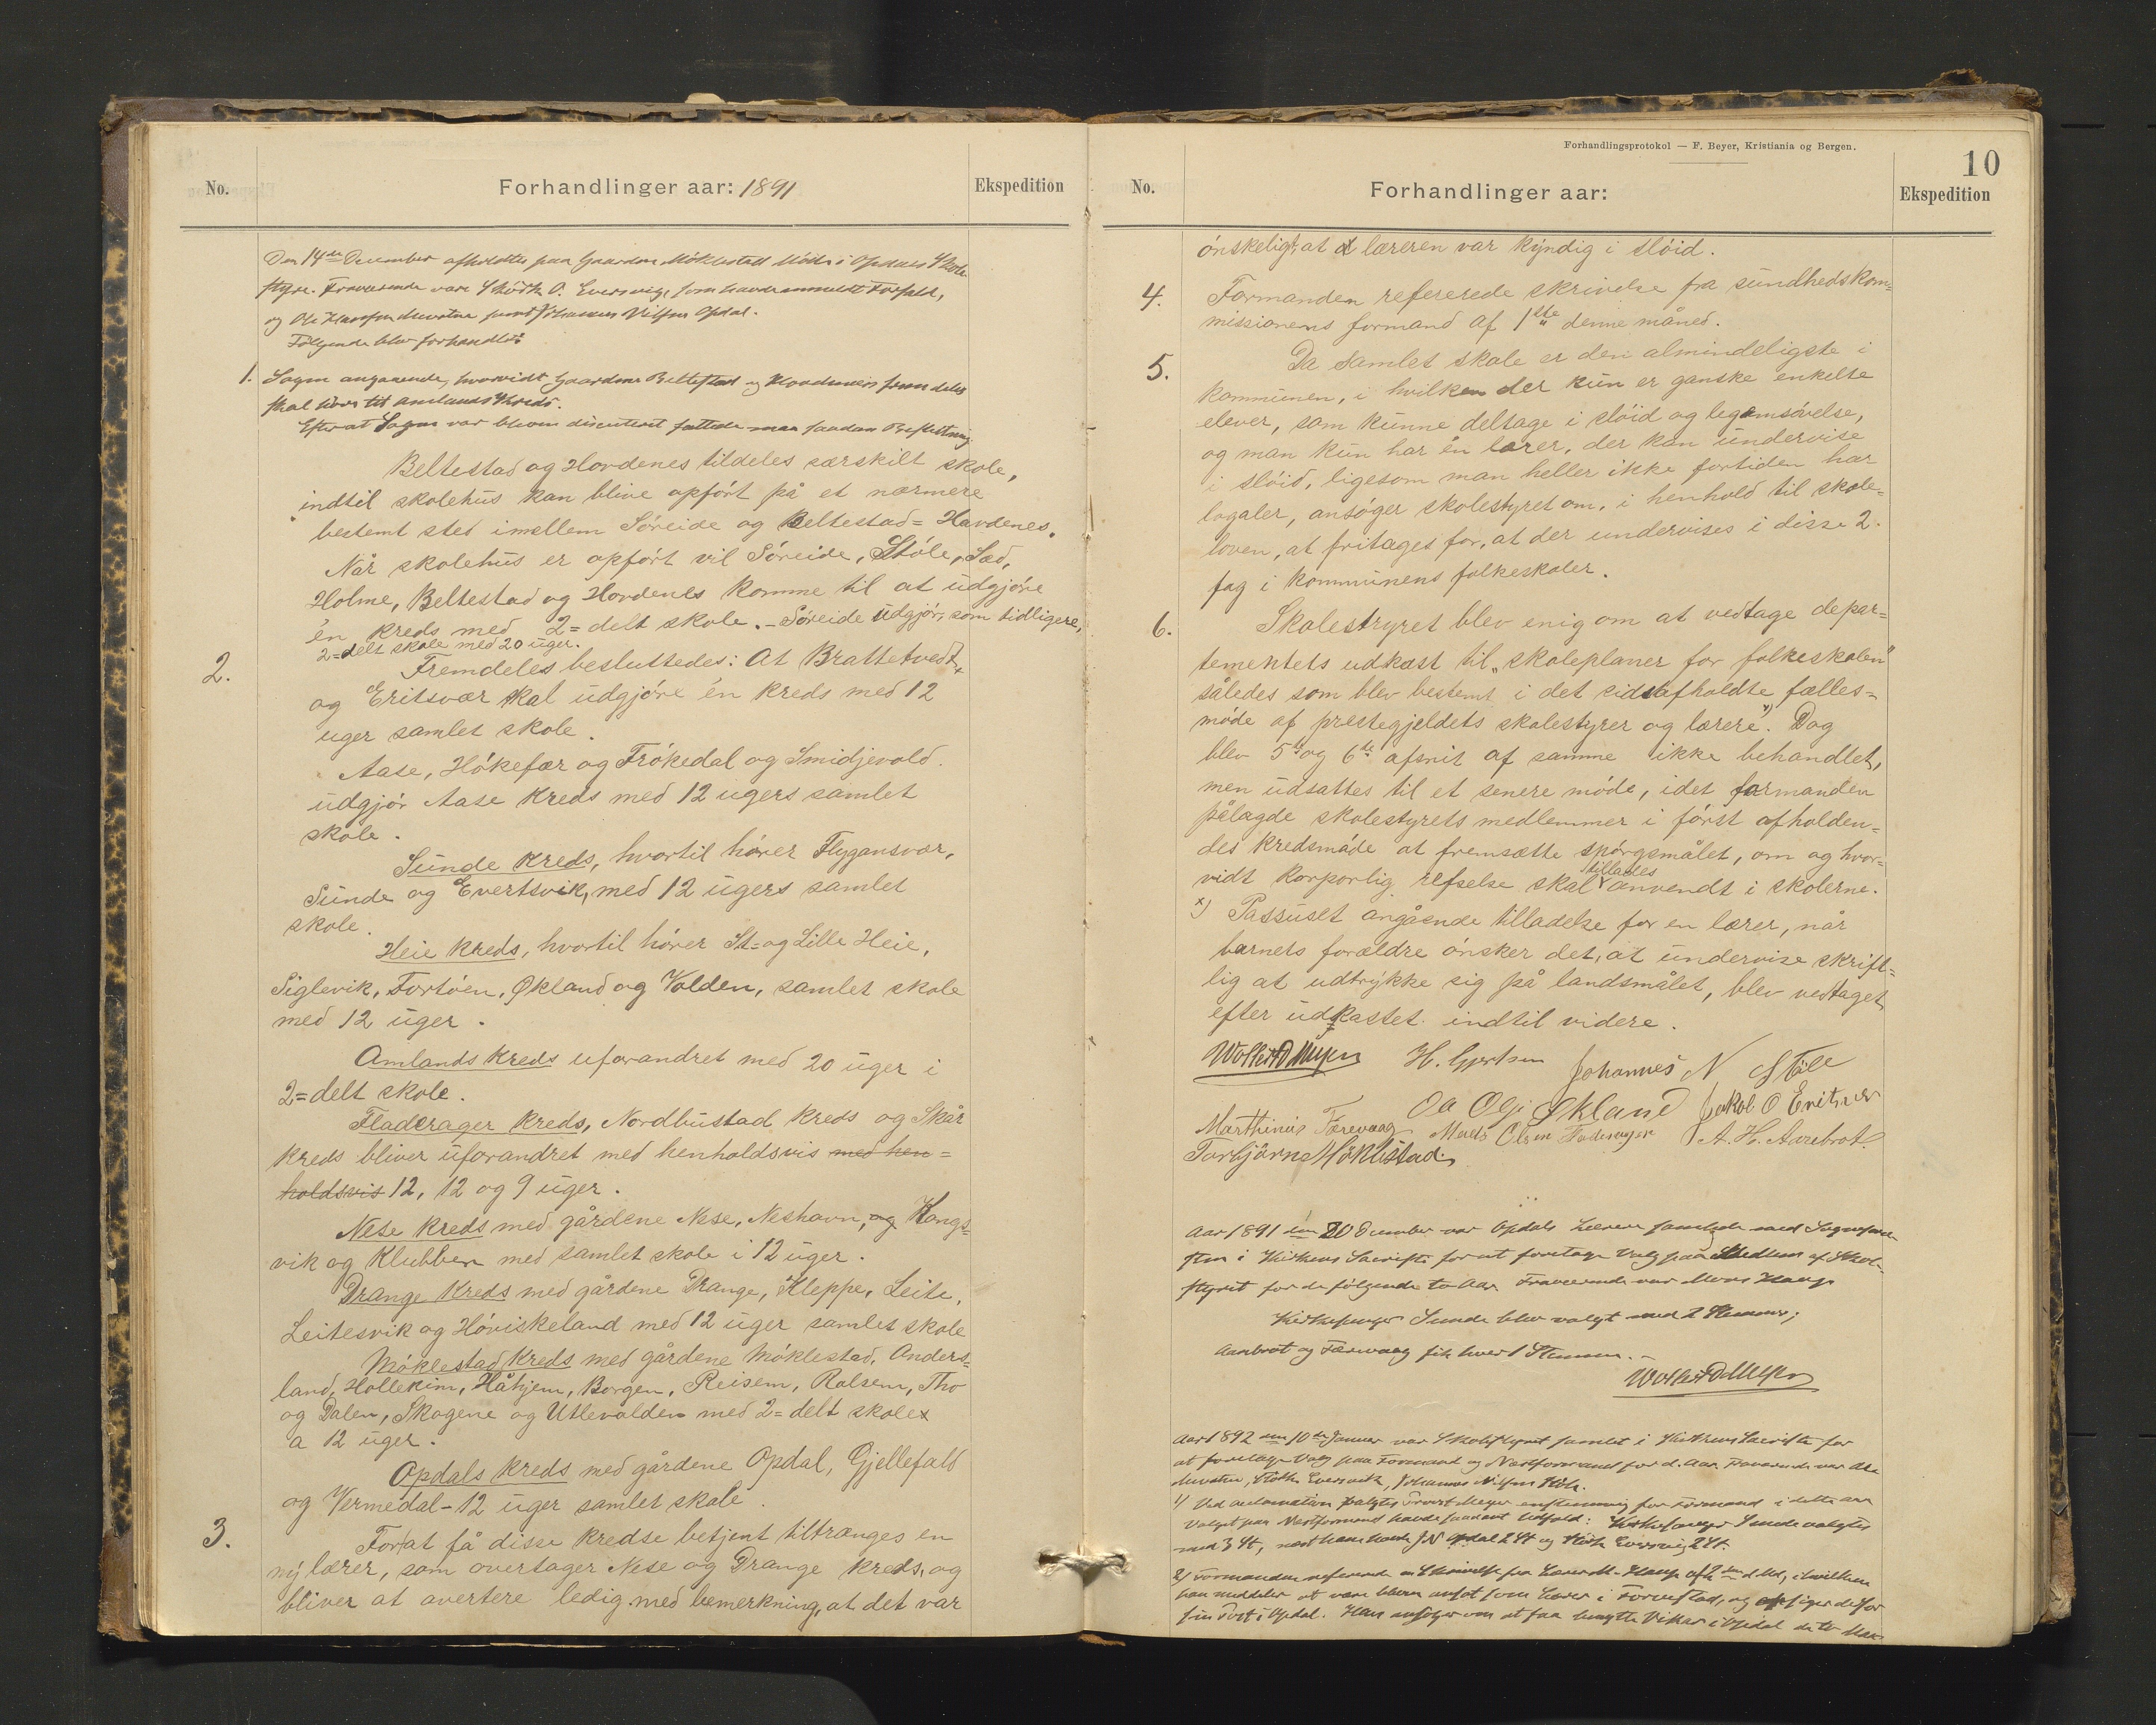 No.
Forhandlinger aar: 1891
Ekspedition
Den 14de December afholdtes paa Gaarden Möklestad Möde i Opdals Skole
styre. Fraværende vare Skódth O. Eversvig, som havde anmeldt Forfald,
og Ole Hansen samt Johannes Nilsen Opdal.
Fölgende blev forhandlet:
1. Sagen angaaende, hvorvidt Gaardene Beltestad og Hordenes fremdeles
skal höre til Amlands Kreds.
Efterat Sagen var bleven discuteret fattede man saadan Beslutning
Beltestad og Hordenes tildeles særskilt skole,
indtil skolehus kan blive opfört på et nærmere
bestemt sted imellem Söreide og Beltestad=Hardenes.
Når skolehus er opfört vil Söreide, Stöle, Sæd,
Holme, Beltestad og Hordenes komme til at udgjöre
én kreds med 2=delt skole. – Söreide udgjör, som tidligere,
2=delt skole med 20 uger.
2. Fremdeles besluttedes: At Brattetvedt
og Eritsvær skal udgjöre én kreds med 12
uger samlet skole.
Aase, Hökefær og Frökedal og Smidjevold
udgjör Aase kreds med 12 ugers samlet
skole.
Sunde kreds, hvortil hörer Flygansvær,
Sunde og Evertsvik, med 12 ugers samlet
skole.
Heie kreds, hvortil hörer St= og Lille Heie,
Siglevik, Fortöen, Økland og Volden, samlet skole
med 12 uger.
Amlands kreds uforandret med 20 uger i
2=delt skole.
Fladerager kreds, Nordbustad kreds og Skår
kreds bliver uforandret med henholdsvis med hen=
holdsvis 12, 12 og 9 uger.
Nese kreds med gårdene Nese, Neshavn, og Kongs=
vik og Klubben med samlet skole i 12 uger.
Drange kreds med gårdene Drange, Kleppe, Leite,
Leitesvik og Höviskeland med 12 uger samlet skole
Möklestad kreds med gårdene Möklestad, Anders=
land, Hollekim, Håhjem, Borgen, Reisem, Rolsem, Tho
og Dalen, Skogene og Utlevolden med 2=delt skole
a 12 uger.
Opdals kreds med gårdene Opdal, Gjellefald
og Vermedal – 12 uger samlet skole.
3. For at få disse kredse betjent tiltrænges en
ny lærer, som overtager Nese og Drange kreds, og
bliver at avertere ledig med bemerkning, at det var
Forhandlingsprotokol — F. Beyer, Kristiania og Bergen.
10
No.
Forhandlinger aar:
Ekspedition
önskeligt, at læreren var kyndig i slöid.
4. Formanden refererede skrivelse fra sundhedskom=
missionens formand af 1ste denne måned.
5. Da samlet skole er den almindeligste i
kommunen, i hvilken der kun er ganske enkelte
elever, som kunne deltage i slöid og legemsövelse,
og man kun har én lærer, der kan undervise
i slöid, ligesom man heller ikke fortiden har
logaler, ansöger skolestyret om, i henhold til skole=
loven, at fritages for, at der undervises i disse 2
fag i kommunens folkeskoler.
6. Skolestryret blev enig om at vedtage depar=
tementets udkast til „skoleplaner for folkeskolen”
således som blev bestemt i det sidstafholdte fælles=
möde af prestegjeldets skolestyrer og lærere x). Dog
blev 5te og 6te afsnit af samme ikke behandlet,
men udsattes til et senere möde, idet formanden
pålagde skolestyrets medlemmer i först afholden=
des kredsmöde at fremsætte spörgsmålet, om og hvor=
tillades
vidt korporlig refselse skal anvendt i skolerne.
x) Passuset angående tilladelse for en lærer, når
barnets forældre önsker det, at undervise skrift=
lig at udtrykke sig på landsmålet, blev vedtaget
efter udkastet indtil videre.
Wollert D Meyer H. Gjertsen Johannes N Stöle
Marthinus Færevaag Ole Olsen Økland Jakob O Eritsvær
Torbjörn Möklestad Mads Olsen Fladerager A. H. Aurebrot
Aar 1891 den 20 December var Opdals Lærere samlede med Sognepræ
sten i Kirkens Sacristi for at foretage Valg paa Medlem af Skole-
styret for de fölgende to Aar. Fraværende var Mons Hauge
Kirkesanger Sunde blev valgt med 2 Stemmer;
Aurebrot og Færevaag fik hver 1 Stemme. –
Wollert D Meyer
Aar 1892 den 10de Januar var Skolestyret samlet i Kirkens Sacristi for
at foretage Valg paa Formand og Næstformand for d. Aar. Fraværende var Ole
Skódth Eversvik, Johannes Nilsen Stöle.
1) Ved acclamation valgtes Provst Meyer enstemmig for Formand i dette aar
Valget paa Næstformand havde saadant Udfald: Kirkesanger Sunde valgtes
med 3 St, næst ham havde J N Opdal 2 St og Skódt Eversvig 2 St.
2) Formanden refererede en Skrivelse fra Lærer M. Hauge af 2den d Md, i hvilken
han meddeler at være bleven ansat som Lærer i og opsiger derfor
sin Post i Opdal. Han ansöger om at faa benytte Vikar i Opdal de to